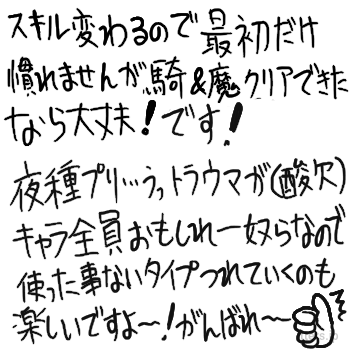 スキル変わるので最初だけ
慣れませんが騎&魔クリアできた
なら大丈夫!です!
夜種プリ…うっトラウマが(酸欠)
キャラ全員おもしれー奴らなので
使った事ないタイプつれていくのも
楽しいですよ〜!がんばれ〜